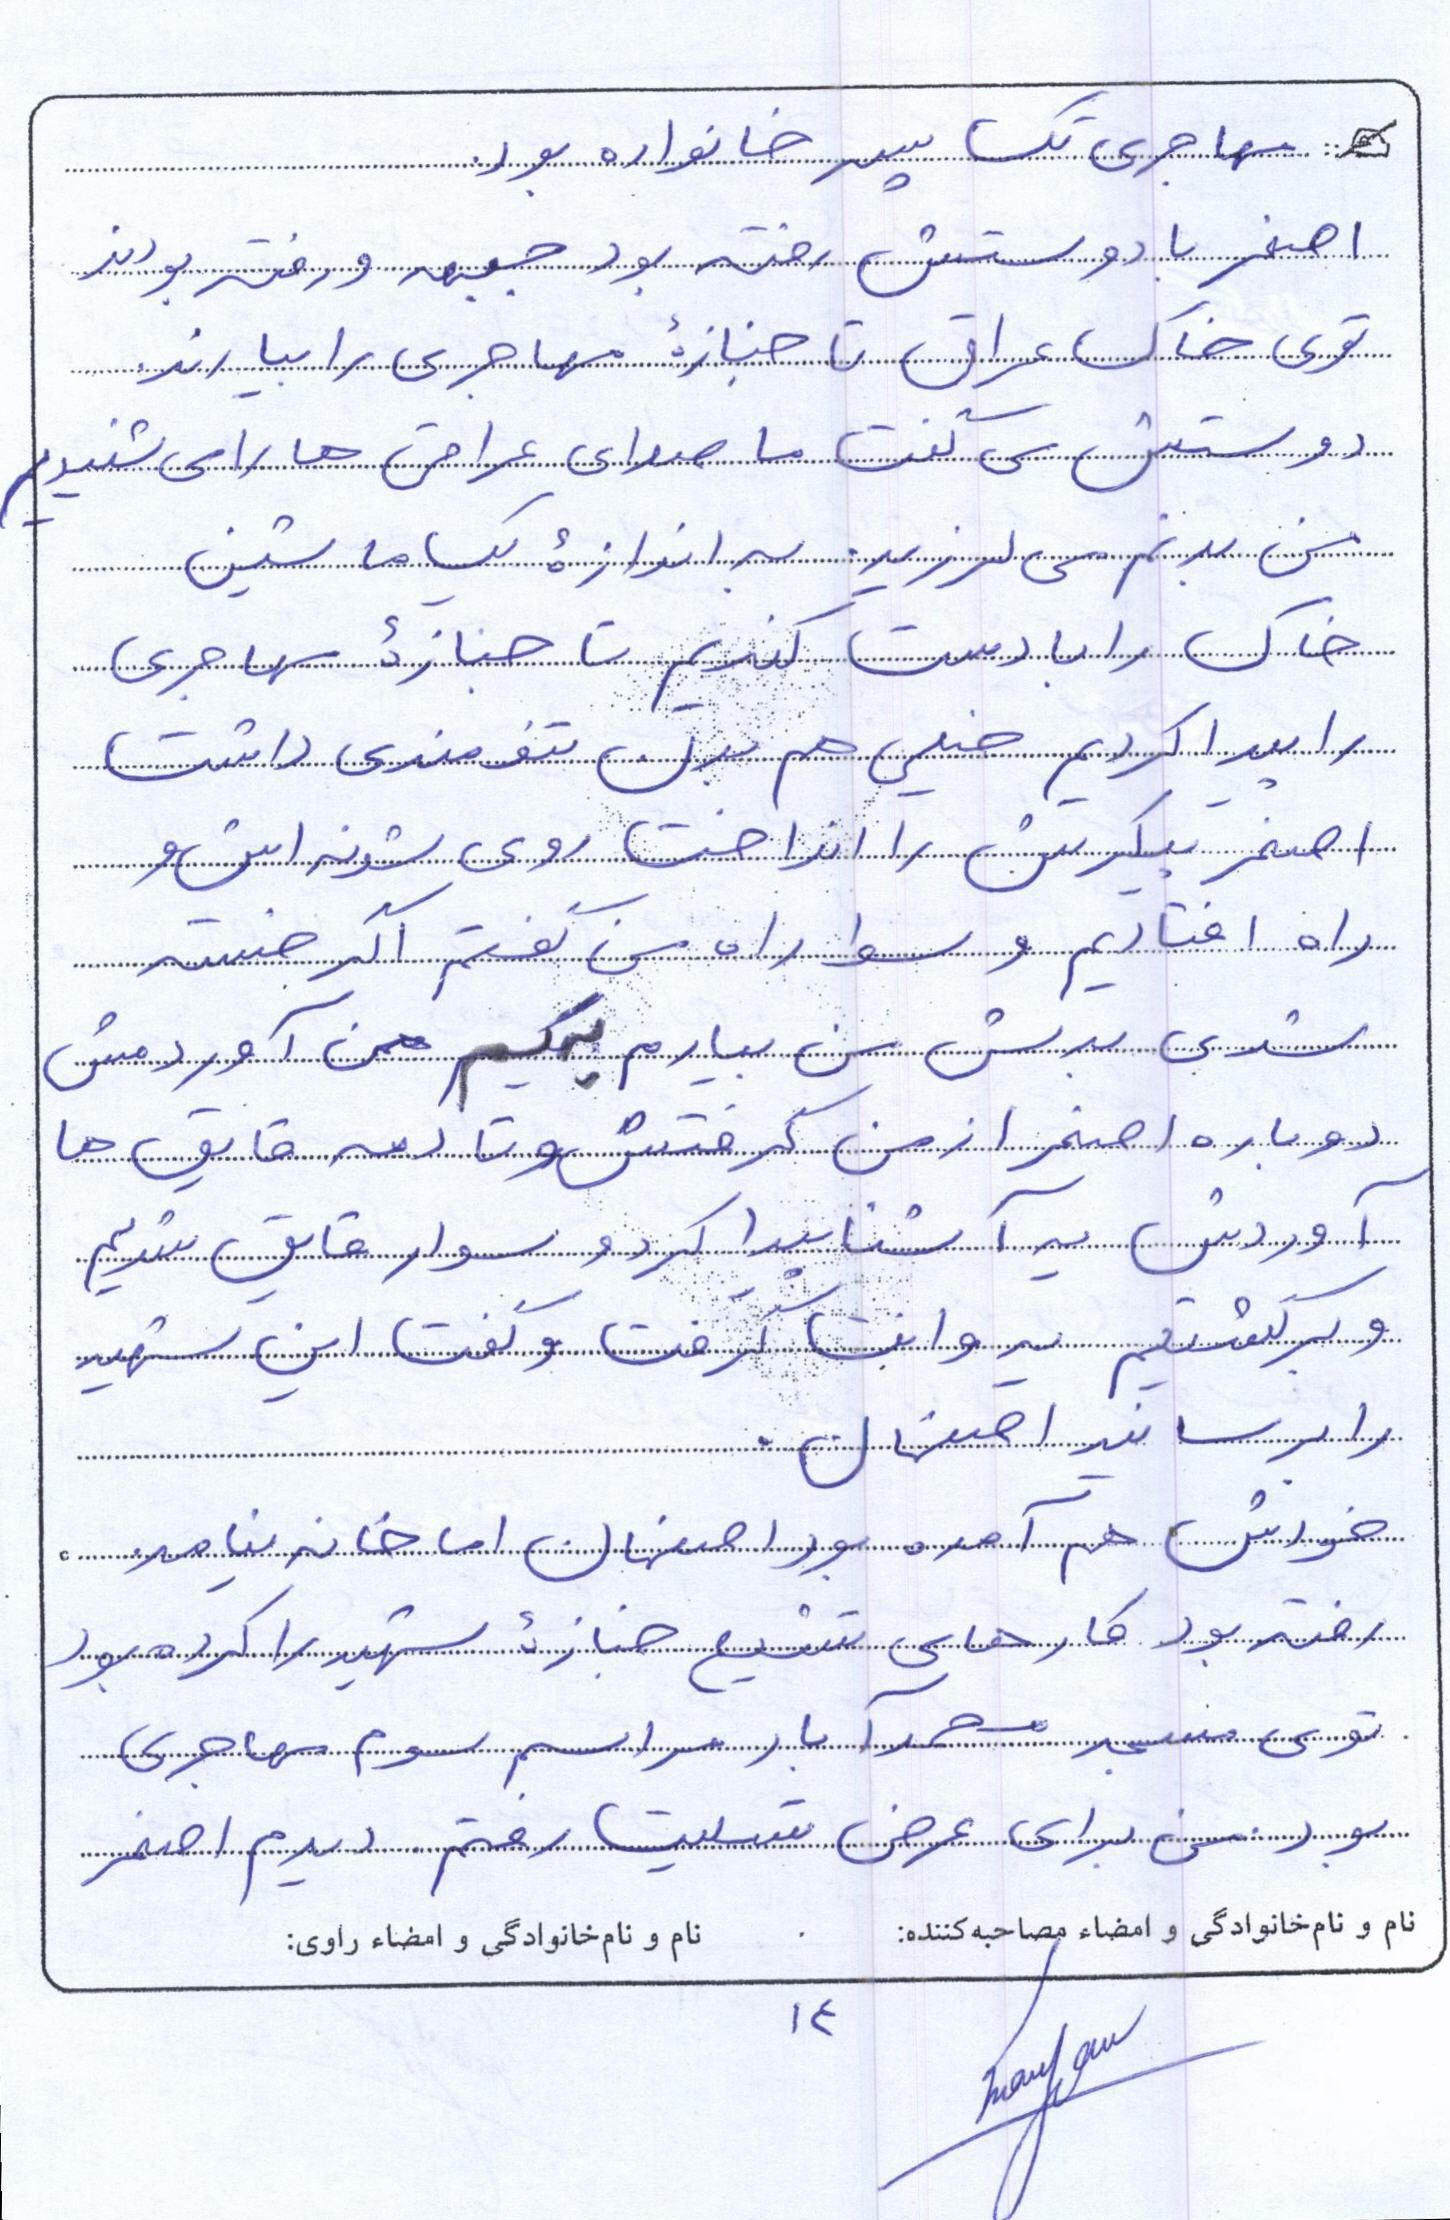 مهاجری تک پسر خانواده بود.
اصغر با دوستش رفته بود جبهه و رفته بودند
توی خاک عراق تا جنازهٔ مهاجری را بیارند.
دوستش می گفت ما صدای عراقی ها را می شنیدیم
من بدنم می لرزید. به اندازهٔ یک ماشین
خاک را با دست کندیم تا جنازهٔ مهاجری
را پیدا کردیم خیلی هم بدن تنومندی داشت
اصغر پیکرش را انداخت روی شونه اش و
راه افتادیم و سوا راه من گفتم اگر خسته
شدی بدش من بیارم من آوردمش
دوباره اصغر از من گرفتش و تا دمه قایق ها
آوردش یه آشنا پیدا کرد و سوار قایق شدیم
و برگشتیم یه وانت گرفت و گفت این شهید
را برسانید اصفهان.
خودش هم آمده بود اصفهان اما خانه نیامد.
رفته بود کارهای تشییع جنازهٔ شهید را کرده بود
توی مسجد محمدآباد مراسم سوم مهاجری
بود. من برای عرض تسلیت رفتم. دیدم اصغر
نام و نام‌خانوادگی و امضاء مصاحبه‌کننده: نام و نام‌خانوادگی و امضاء راوی:
۱۴